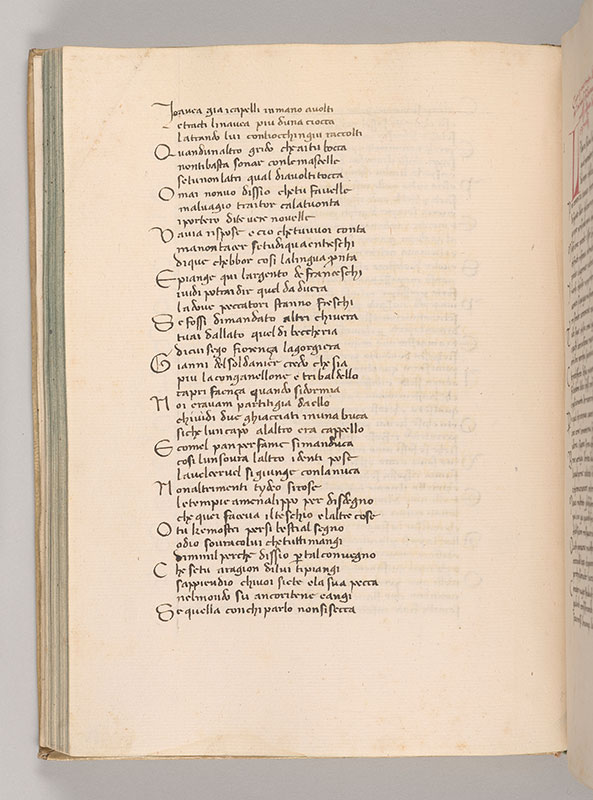 Ioavea gia icapelli inmano avolti
etracti linavea piu duna ciocca
latrando lui conliocchingiu raccolti
Quandunaltro grido chaitu bocca
nontibasta sonar conlemascelle
setunonlatri qual diavoltitocca
Omai nonvo dissio chetu favelle
malvagio traitor calatuonta
iportero dite vere novelle
Vavia rispose e cio chetuvuoi conta
manontacer setudiquaentreschi
dique chebbor cosi lalingua pronta
Epiange qui largento de franceschi
ividi potraidir quel da duera
ladove peccatori stanno freschi
Se fossi dimandato altri chivera
tuai dallato quel di beccheria
dicui sego fiorença lagorgiera
Gianni delsoldanier credo chesia
piu laconganellone e tribaldello
capri faença quando sidormia
Noi eravam partitigia daello
chiuidi due ghiacciati inuna buca
siche luncapo alaltro era cappello
Ecomel pan perfame simanduca
cosi lunsoura laltro identi pose
lauclcervel sigiunge conlanuca
Nonaltrimenti tydeo sirose
letempie amenalippo per disdegno
che quei faceva ilteschio elaltre cose
Otu kemostri persi bestial segno
odio sovracolui chetutimangi
dimmil perche dissio p tal convegno
Chesetu aragion dilui tipiangi
sappiendio chivoi siete ela sua pecca
nelmondo su ancoritene cangi
Sequella conchi parlo nonsisecca